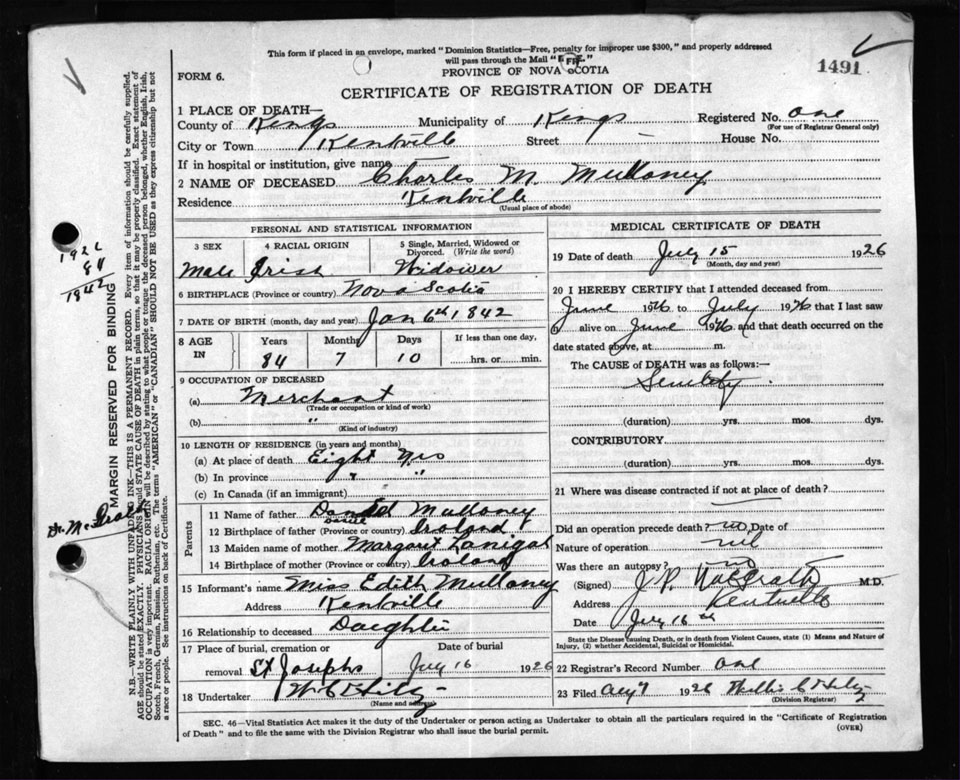 This form if placed in an envelope, marked "Dominion Statistics—Free, penalty for improper use $300," and properly addressed
will pass through the Mail "FREE"
PROVINCE OF NOVA SCOTIA
1491
FORM 6.
CERTIFICATE OF REGISTRATION OF DEATH
1 PLACE OF DEATH—
County of Kings Municipality of Kings Registered No. one
(For use of Registrar General only)
City or Town Kentville Street House No.
If in hospital or institution, give name
2 NAME OF DECEASED Charles M. Mulloney
Residence Kentville
(Usual place of abode)
PERSONAL AND STATISTICAL INFORMATION
3 SEX 4 RACIAL ORIGIN 5 Single, Married, Widowed or Divorced. (Write the word)
Male Irish Widower
6 BIRTHPLACE (Province or country) Nova Scotia
7 DATE OF BIRTH (month, day and year) Jan 6th 1842
8 AGE IN Years Months Days If less than one day,
84 7 10 hrs. or min.
9 OCCUPATION OF DECEASED
(a) Merchant
(Trade or occupation or kind of work)
(b) "
(Kind of industry)
10 LENGTH OF RESIDENCE (in years and months)
(a) At place of death Eight Yrs
(b) In province " "
(c) In Canada (if an immigrant)
Parents
11 Name of father Daniel Mulloney
12 Birthplace of father (Province or country) Ireland
13 Maiden name of mother Margaret Lanigan
14 Birthplace of mother (Province or country) Ireland
15 Informant's name Miss Edith Mulloney
Address Kentville
16 Relationship to deceased Daughter
17 Place of burial, cremation or removal Date of burial
St Josephs July 16 1926
18 Undertaker
(Name and address)
MEDICAL CERTIFICATE OF DEATH
19 Date of death July 15 1926
(Month, day and year)
20 I HEREBY CERTIFY that I attended deceased from
June 1926 to July 1926 that I last saw
h alive on June 1926 and that death occurred on the
date stated above, at m.
The CAUSE OF DEATH was as follows:—
Senility
(duration) yrs. mos. dys.
CONTRIBUTORY
(duration) yrs. mos. dys.
21 Where was disease contracted if not at place of death?
Did an operation precede death? no Date of
Nature of operation nil
Was there an autopsy? no
(Signed) M.D.
Address Kentville
Date July 16th
State the Disease causing Death, or in death from Violent Causes, state (1) Means and Nature of
Injury, (2) whether Accidental, Suicidal or Homicidal.
22 Registrar's Record Number one
23 Filed Aug 7 1926
(Division Registrar)
SEC. 46—Vital Statistics Act makes it the duty of the Undertaker or person acting as Undertaker to obtain all the particulars required in the "Certificate of Registration
of Death" and to file the same with the Division Registrar who shall issue the burial permit.
(OVER)
MARGIN RESERVED FOR BINDING
N.B.—WRITE PLAINLY WITH UNFADING INK—THIS IS A PERMANENT RECORD. Every item of information should be carefully supplied.
AGE should be stated EXACTLY. PHYSICIANS should STATE CAUSE OF DEATH in plain terms, so that it may be properly classified. Exact statement of
OCCUPATION is very important. RACIAL ORIGIN will be described by stating to what people or tongue the deceased person belonged, whether English, Irish,
Scotch, French, German, Russian, Ruthenian, etc. The terms "AMERICAN" or "CANADIAN" SHOULD NOT BE USED as they express citizenship but not
a race or people. See instructions on back of Certificate.
1926
84
1842